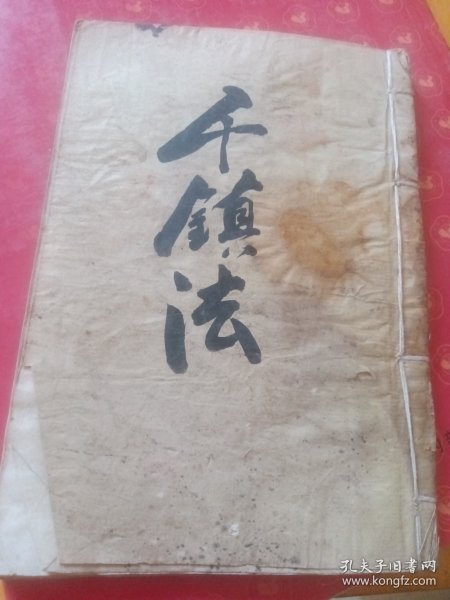 千鎮法
孔夫子旧书网
www.kongfz.com